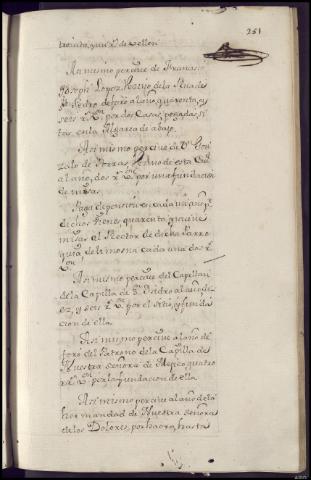 251
treinta, y un Rs de vellon
Asi mismo percive de Francisco
Joseph Lopez Vezino dela Villa de
Sn Pedro de foro al año, quarenta, y
seis Rs Vn por dos Casas, pegadas, si
tas en la de abajo.
Asi mismo percive de Dn Gon
zalo de Porras Vezino de esta Ciud
al año, dos Rs Vn por una fundacion
de misas.
Paga de pension en cada un año, pr
dichos vienes, quarenta, y nueve
misas el Rector de dicha Parro
quia, de limosna cada una dos Rs
Vn
Asi mismo percive del Capellan
dela Capilla de Sn Isidro al año, di
ez, y seis Rs Vn por el sitio, y funda
cion de ella.
Asi mismo percive al año de
foro del Patrono dela Capilla de
Nuestra señora de quatro
Rs de Vn por la fundacion de ella.
Asi mismo percive al año dela
hermandad de Nuestra señora
delos Dolores, por hacer, hasta